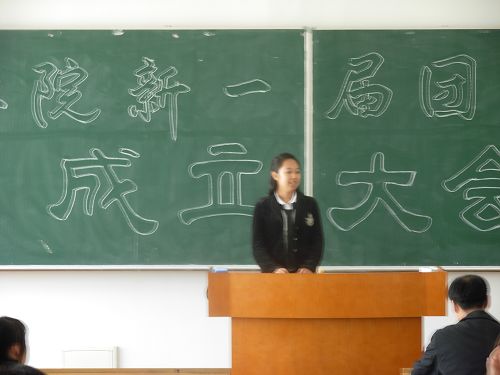 院新一届团
成立大会